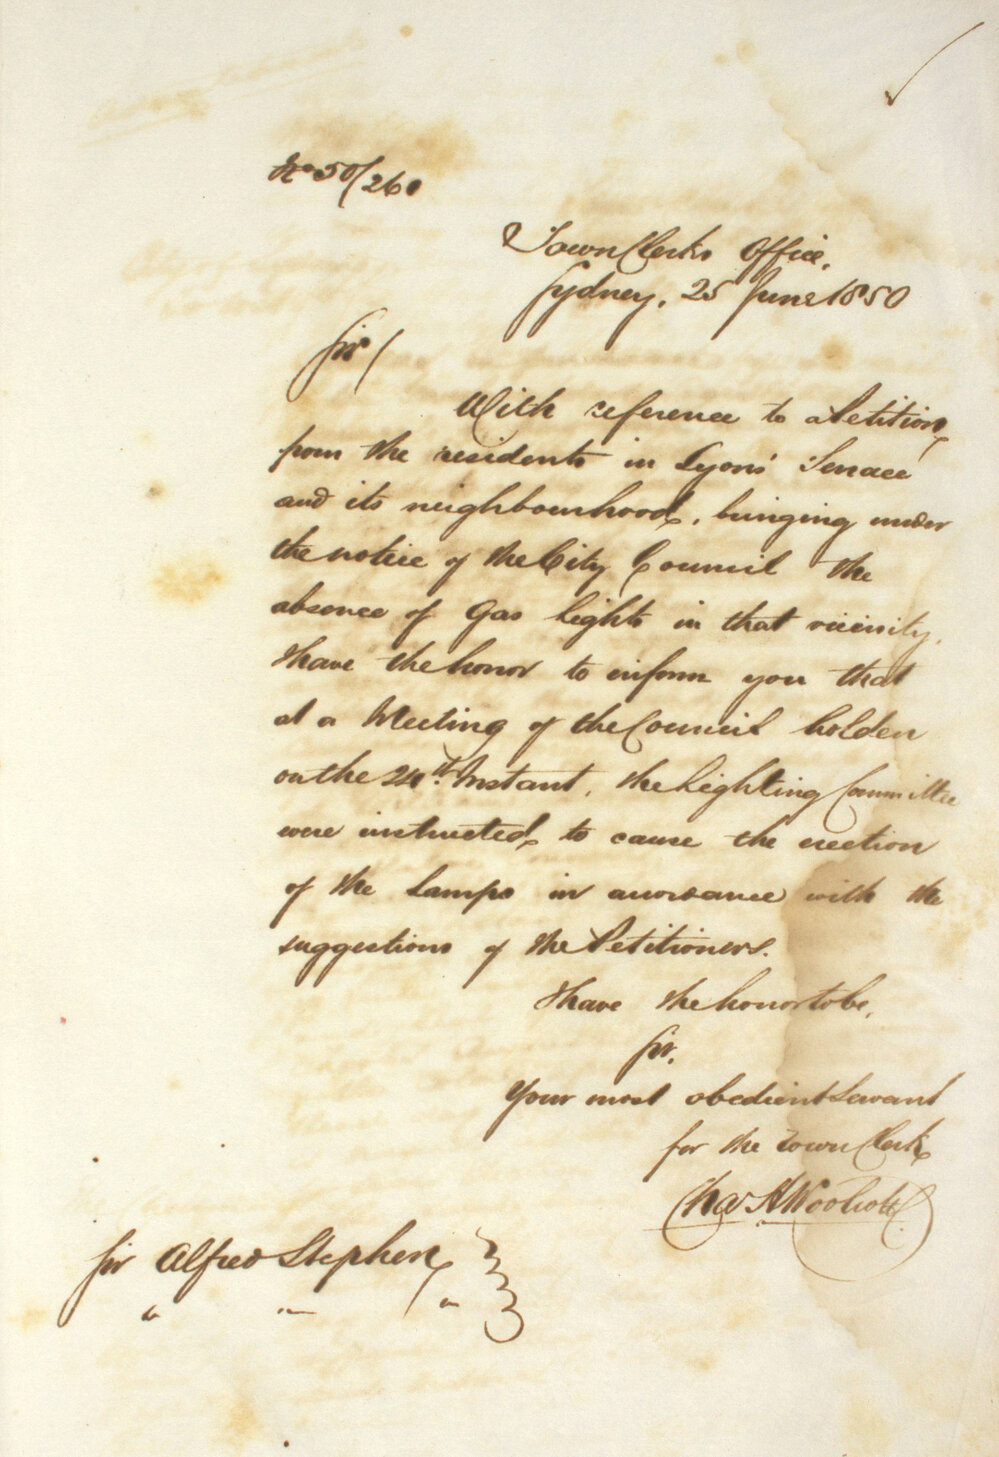 No 50/260
Town Clerks Office,
Sydney, 25 June 1850
Sir/
With reference to a Petition
from the residents in Lyons' Terrace
and its neighbourhood, bringing under
the notice of the City Council the
absence of Gas lights in that vicinity.
I have the honor to inform you that
at a Meeting of the Council holden
on the 24th Instant, the Lighting Committee
were instructed to cause the erection
of the Lamps in accordance with the
suggestions of the Petitioners.
I have the honor to be,
Sir,
Your most obedient Servant
for the Town Clerk
Chas H Woolcott
Sir Alfred Stephen
" " "